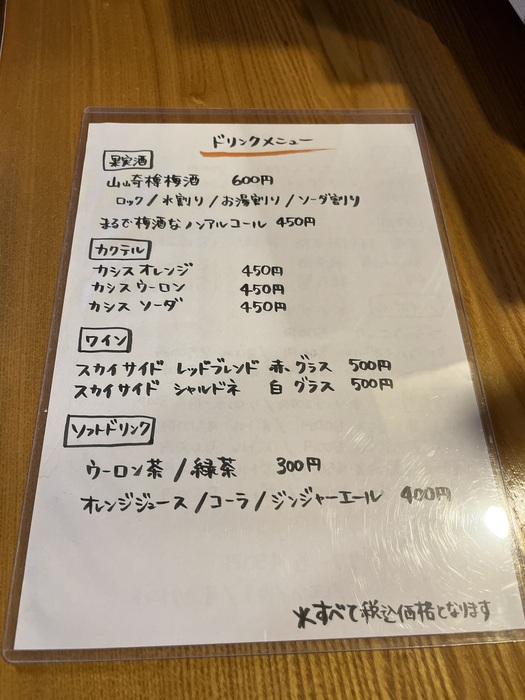 ドリンクメニュー
果実酒
山崎樽梅酒 600円
ロック/水割り/お湯割り/ソーダ割り
まるで梅酒なノンアルコール 450円
カクテル
カシスオレンジ 450円
カシスウーロン 450円
カシス ソーダ 450円
ワイン
スカイサイド レッドブレンド 赤、グラス 500円
スカイサイド シャルドネ 白 グラス 500円
ソフトドリンク
ウーロン茶/緑茶 300円
オレンジジュース/コーラ/ジンジャーエール 400円
※すべて税込価格となります